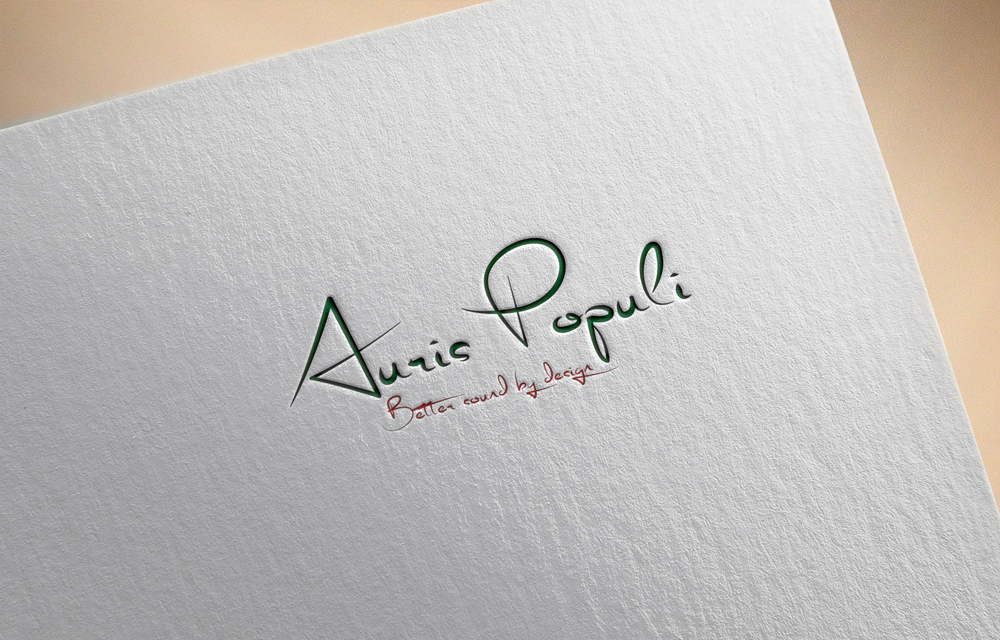 Auris Populi
Better sound by design